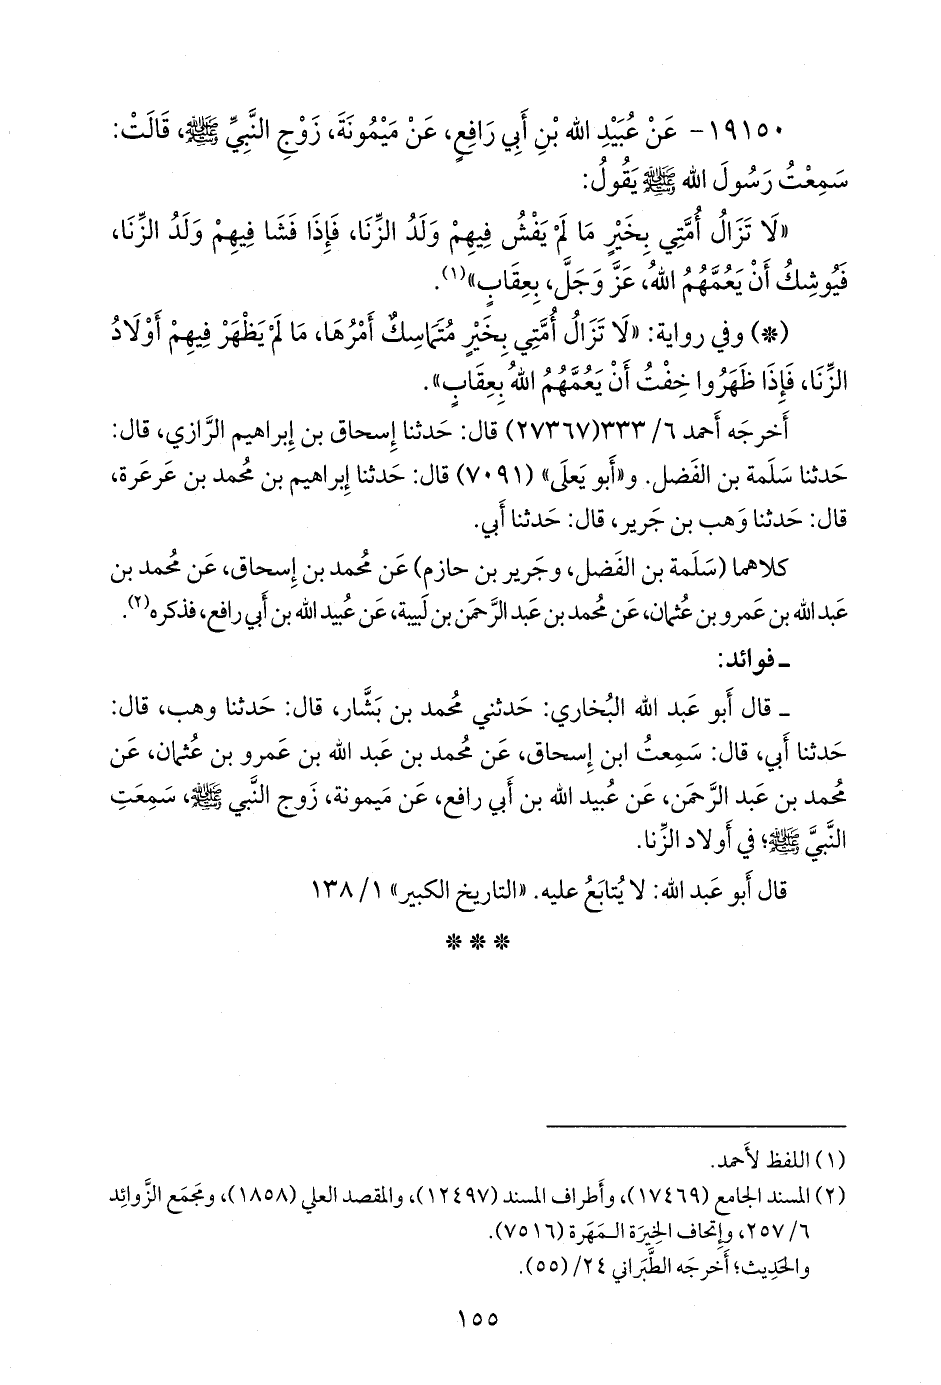 ١٩١٥٠- عَنْ عُبَيْدِ الله بْنِ أَبِي رَافِعٍ، عَنْ مَيْمُونَةَ، زَوْجِ النَّبِيِّ ﷺ، قَالَتْ:
سَمِعْتُ رَسُولَ الله ﷺ يَقُولُ:
«لَا تَزَالُ أُمَّتِي بِخَيْرٍ مَا لَمْ يَفْشُ فِيهِمْ وَلَدُ الزِّنَا، فَإِذَا فَشَا فِيهِمْ وَلَدُ الزِّنَا،
فَيُوشِكُ أَنْ يَعُمَّهُمُ اللهُ، عَزَّ وَجَلَّ، بِعِقَابٍ»(١).
(*) وفي رواية: «لَا تَزَالُ أُمَّتِي بِخَيْرٍ مُتَمَاسِكٌ أَمْرُهَا، مَا لَمْ يَظْهَرْ فِيهِمْ أَوْلَادُ
الزِّنَا، فَإِذَا ظَهَرُوا خِفْتُ أَنْ يَعُمَّهُمُ اللهُ بِعِقَابٍ».
أَخرجَه أَحمد ٦/ ٣٣٣(٢٧٣٦٧) قال: حَدثنا إِسحاق بن إِبراهيم الرَّازي، قال:
حَدثنا سَلَمة بن الفَضل. و«أَبو يَعلَى» (٧٠٩١) قال: حَدثنا إِبراهيم بن مُحمد بن عَرعَرة،
قال: حَدثنا وَهب بن جَرير، قال: حَدثنا أَبي.
كلاهما (سَلَمة بن الفَضل، وجَرير بن حازم) عَن مُحمد بن إِسحاق، عَن مُحمد بن
عَبد الله بن عَمرو بن عُثمان، عَن مُحمد بن عَبد الرَّحمَن بن لَبيبة، عَن عُبيد الله بن أَبي رافع، فذكره(٢).
ـ فوائد:
ـ قال أَبو عَبد الله البُخاري: حَدثني مُحمد بن بَشَّار، قال: حَدثنا وهب، قال:
حَدثنا أَبي، قال: سَمِعتُ ابن إِسحاق، عَن مُحمد بن عَبد الله بن عَمرو بن عُثمان، عَن
مُحمد بن عَبد الرَّحمَن، عَن عُبيد الله بن أَبي رافع، عَن مَيمونة، زَوج النَّبي ﷺ، سَمِعَتِ
النَّبيَّ ﷺ؛ في أَولاد الزِّنا.
قال أَبو عَبد الله: لا يُتابَعُ عليه. «التاريخ الكبير» ١/ ١٣٨
* * *
(١) اللفظ لأَحمد.
(٢) المسند الجامع (١٧٤٦٩)، وأَطراف المسند (١٢٤٩٧)، والمقصد العلي (١٨٥٨)، ومَجمَع الزَّوائِد
٦/ ٢٥٧، وإِتحاف الخِيرَة الـمَهَرة (٧٥١٦).
والحَدِيث؛ أَخرجَه الطَّبَراني ٢٤/ (٥٥).
١٥٥